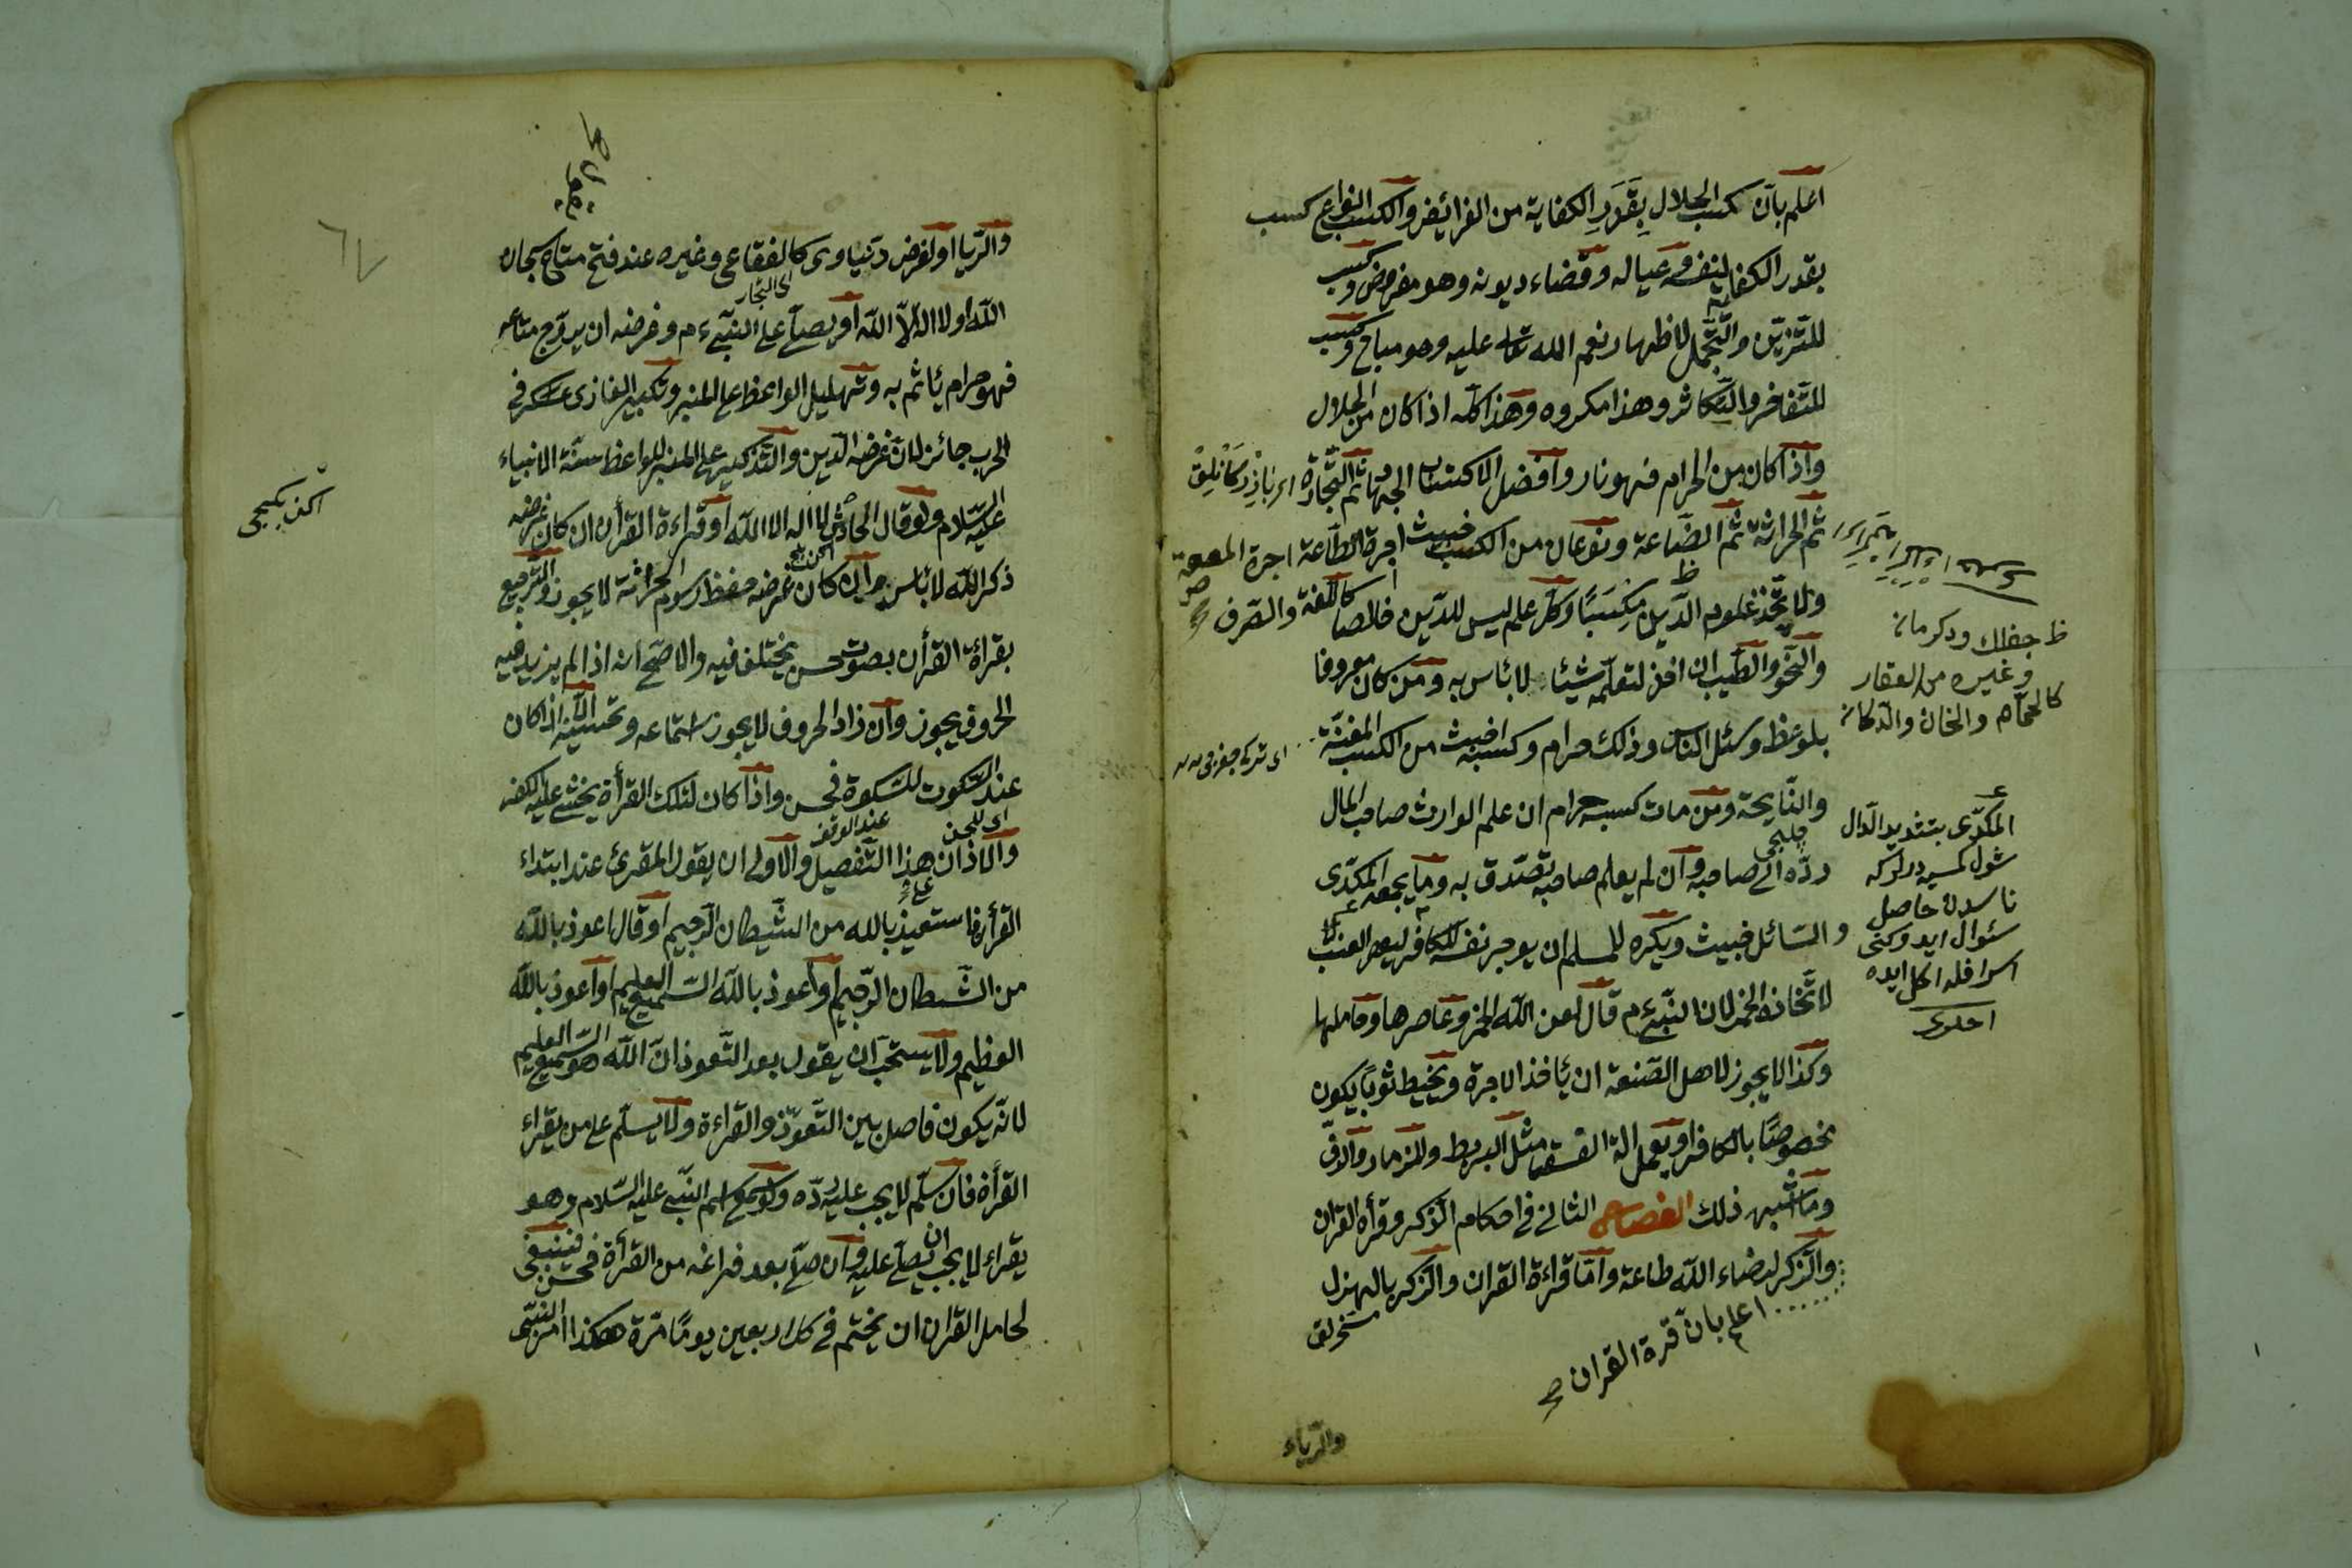 اعلم بان كسب الحلال بقدر الكفاية من الفرائض والكسب انواع كسب
بقدر الكفاية لنفسه وعياله وقضاء ديونه وهو مفروض وكسب
للتزين والتجمل لاظهار نعم الله تعالى عليه وهو مباح وكسب
للتفاخر والتكاثر وهذا مكروه وهذا كله اذا كان من الحلال
واذا كان من الحرام فهو نار وافضل الاكتساب الجهاد ثم التجارة
ثم الحراثة ثم الصناعة ونوعان من الكسب خبيث اجرة الطاعة اجرة المعصية
ولا يتخذ علوم الدين مكسبا وكل علم ليس للدين خالصا كاللغة والصرف
والنحو والطب ان اخذ لتعلمه شيئا لا بأس به ومن كان معروفا
بلوعظ وسئل الناس وذلك حرام وكسبه اخبث من الكسب المغنية
والنايحة ومن مات كسبه حرام ان علم الوارث صاحب المال
رده الى صاحبه وان لم يعلم صاحبه تصدق به وما يجمعه المكدى
والسائل خبيث ويكره للمسلم ان يوجر نفسه للكافر ليعصر العنب
لاتخاذه الخمر لان النبى ءم قال لعن الله الخمر وعاصرها وحاملها
وكذا لا يجوز لاهل الصنعة ان يأخذ الاجرة ويخيط ثوبا يكون
مخصوصا بالكافر او يعمل الة الفسق مثل البربط والمزمار والدف
وما اشبه ذلك الفصل الثانى فى احكام الذكر وقرأة القران
والذكر لرضاء الله طاعة واما قراءة القران والذكر بالهزل
اعلم بان قرة القران صح
جفلك ودكرمان
وغيره من العقار
كالحمام والخان والدكان
المكدى بتشديد الدال
ناسدن حاصل
والرياء
والريا او لغرض دنياوى كالفقاعى وغيره عند فتح متاع سبحان
اى التجار
الله او لا اله الا الله او يصلى على النبى ءم وغرضه ان يروج متاعه
فهو حرام يأثم به وتهليل الواعظ على المنبر وتكبير الغازى عسكر فى
الحرب جائز لان غرضه الدين والتذكير على المنبر للواعظ سنة الانبياء
عليه السلام ولو قال الحارث لا اله الا الله او قراءة القرأن ان كان غرضه
ذكر الله لا بأس به وان كان غرضه حفظ رسوم الحراثة لا يجوز والترجيع
بقرأة القرأن بصوت حسن يختلف فيه والاصح انه اذا لم يزيد فيه
الحروف يجوز وان زاد الحروف لا يجوز استماعه وتحسينه الا اذا كان
عند السكوت للسكوة فحسن واذا كان لتلك القرأة يخشى عليه الكفر
اى للحن عند الوقف
والاذان هذا التفصيل والاولى ان يقول المقرئ عند ابتداء
القرأن استعيذ بالله من الشيطان الرجيم او قال اعوذ بالله
من الشيطان الرجيم او اعوذ بالله السميع العليم او اعوذ بالله
العظيم ولا يستحب ان يقول بعد التعوذ ان الله هو السميع العليم
لانه يكون فاصل بين التعوذ والقراءة ولا يسلم على من يقراء
القرأة فان سلم لا يجب عليه رده ولو سمع اسم النبى عليه السلام وهو
يقراء لا يجب ان يصلى عليه وان صلى بعد فراغه من القرأة فحسن فينبغى
لحامل القران ان يختم فى كل اربعين يوما مرة هكذا امر النبى